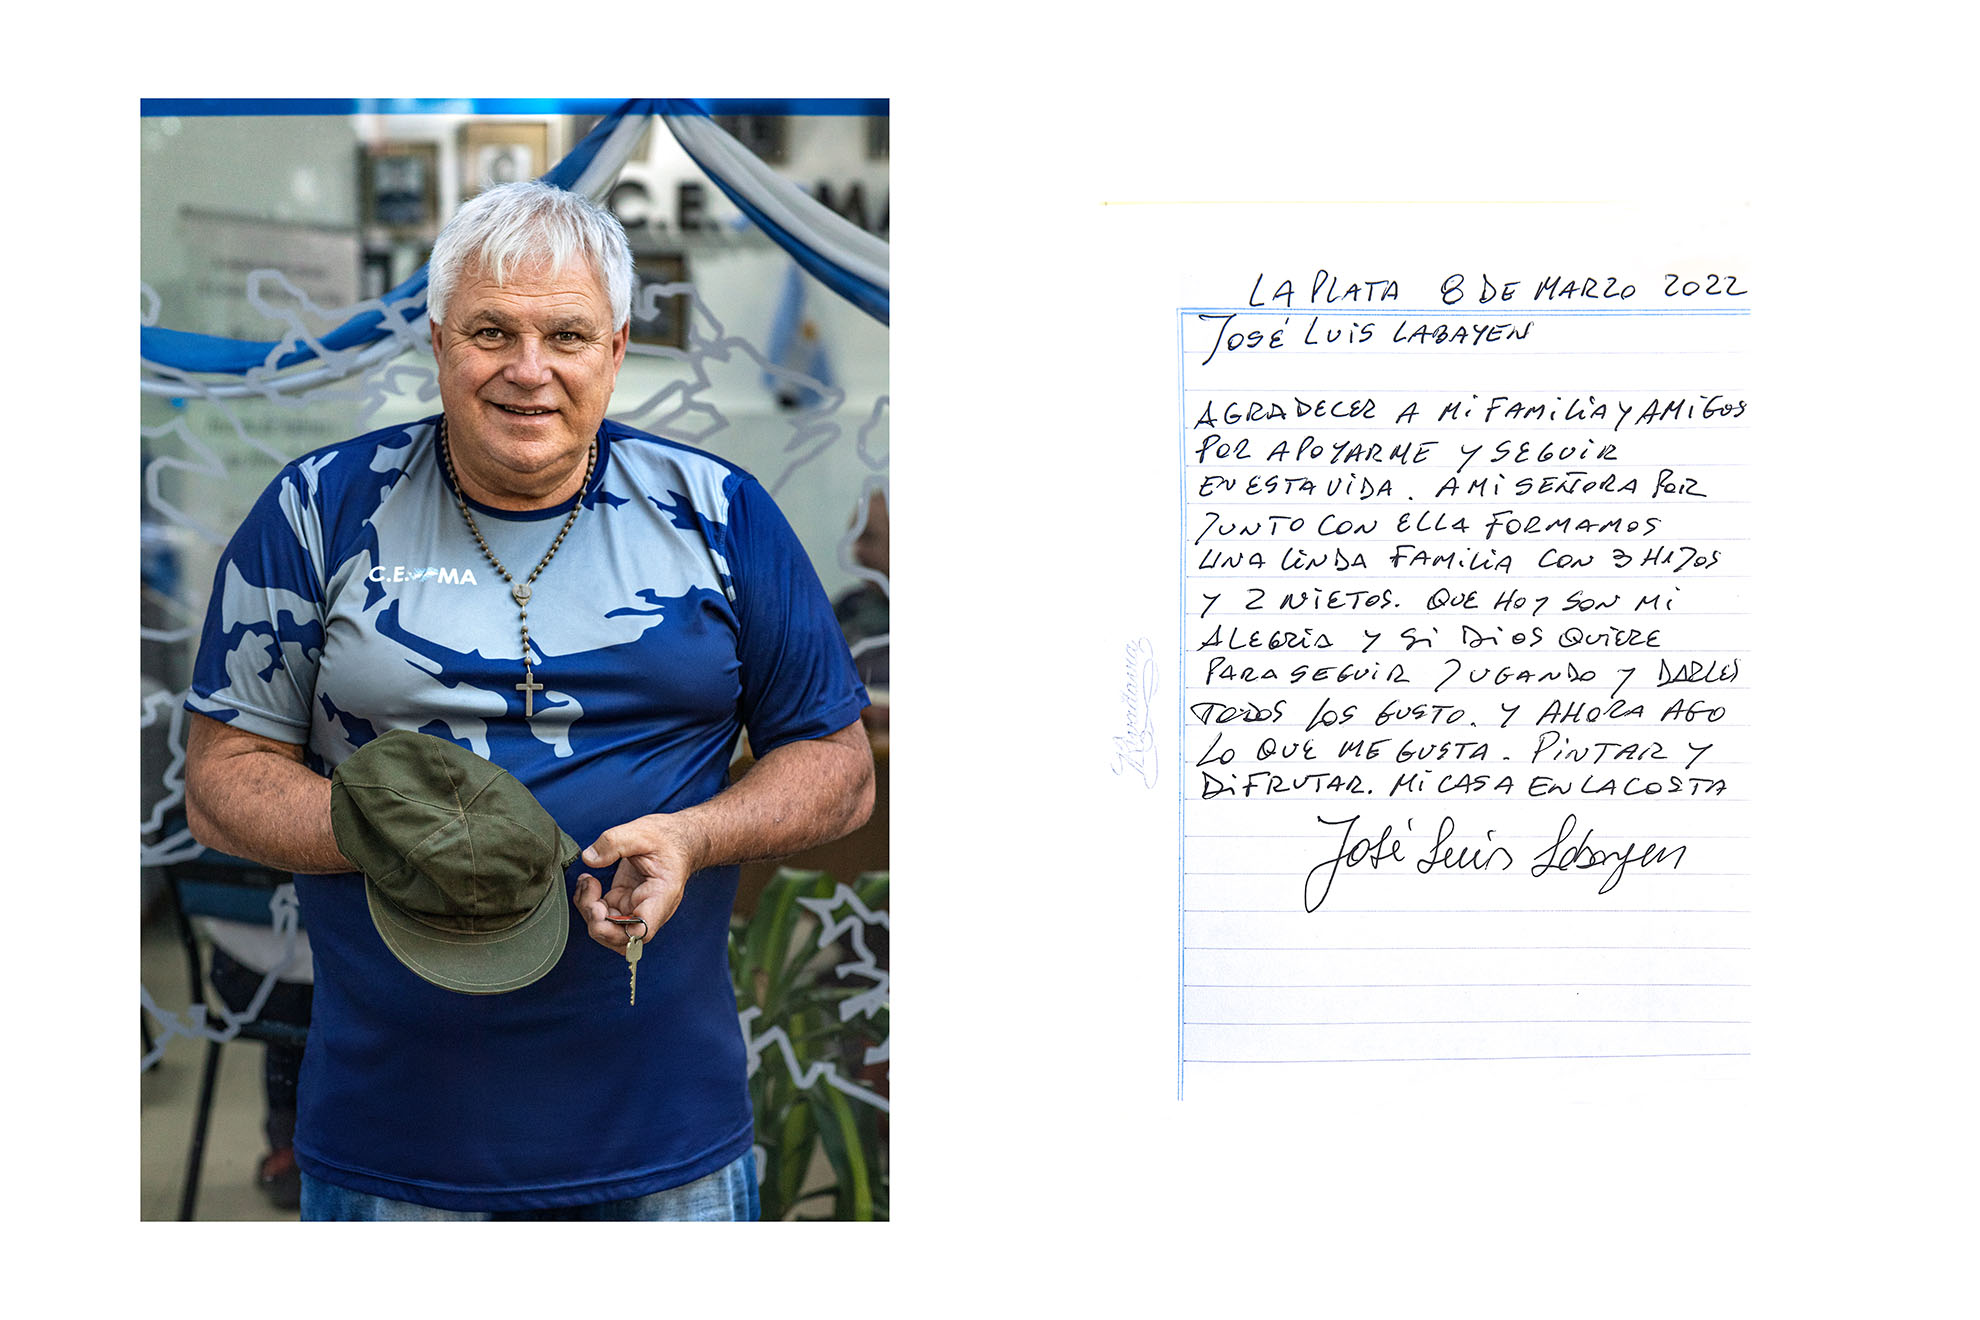 C.E. MA
C.E. MA
LA PLATA 8 DE MARZO 2022
JOSÉ LUIS LABAYEN
AGRADECER A Mi FAMiLiA Y AMiGOS
POR APOYARME Y SEGUIR
EN ESTA VIDA. A Mi SEÑORA POR
JUNTO CON ELLA FORMAMOS
UNA LiNDA FAMiLiA CON 3 HIJOS
Y 2 NIETOS. QUE HOY SON Mi
ALEGRIA Y Si DiOS QUIERE
PARA SEGUIR JUGANDO Y DARLES
TODOS LOS GUSTO. Y AHORA AGO
LO QUE ME GUSTA. PiNTAR Y
DiFRUTAR. Mi CASA EN LA COSTA
José Luis Labayen
Rivadavia